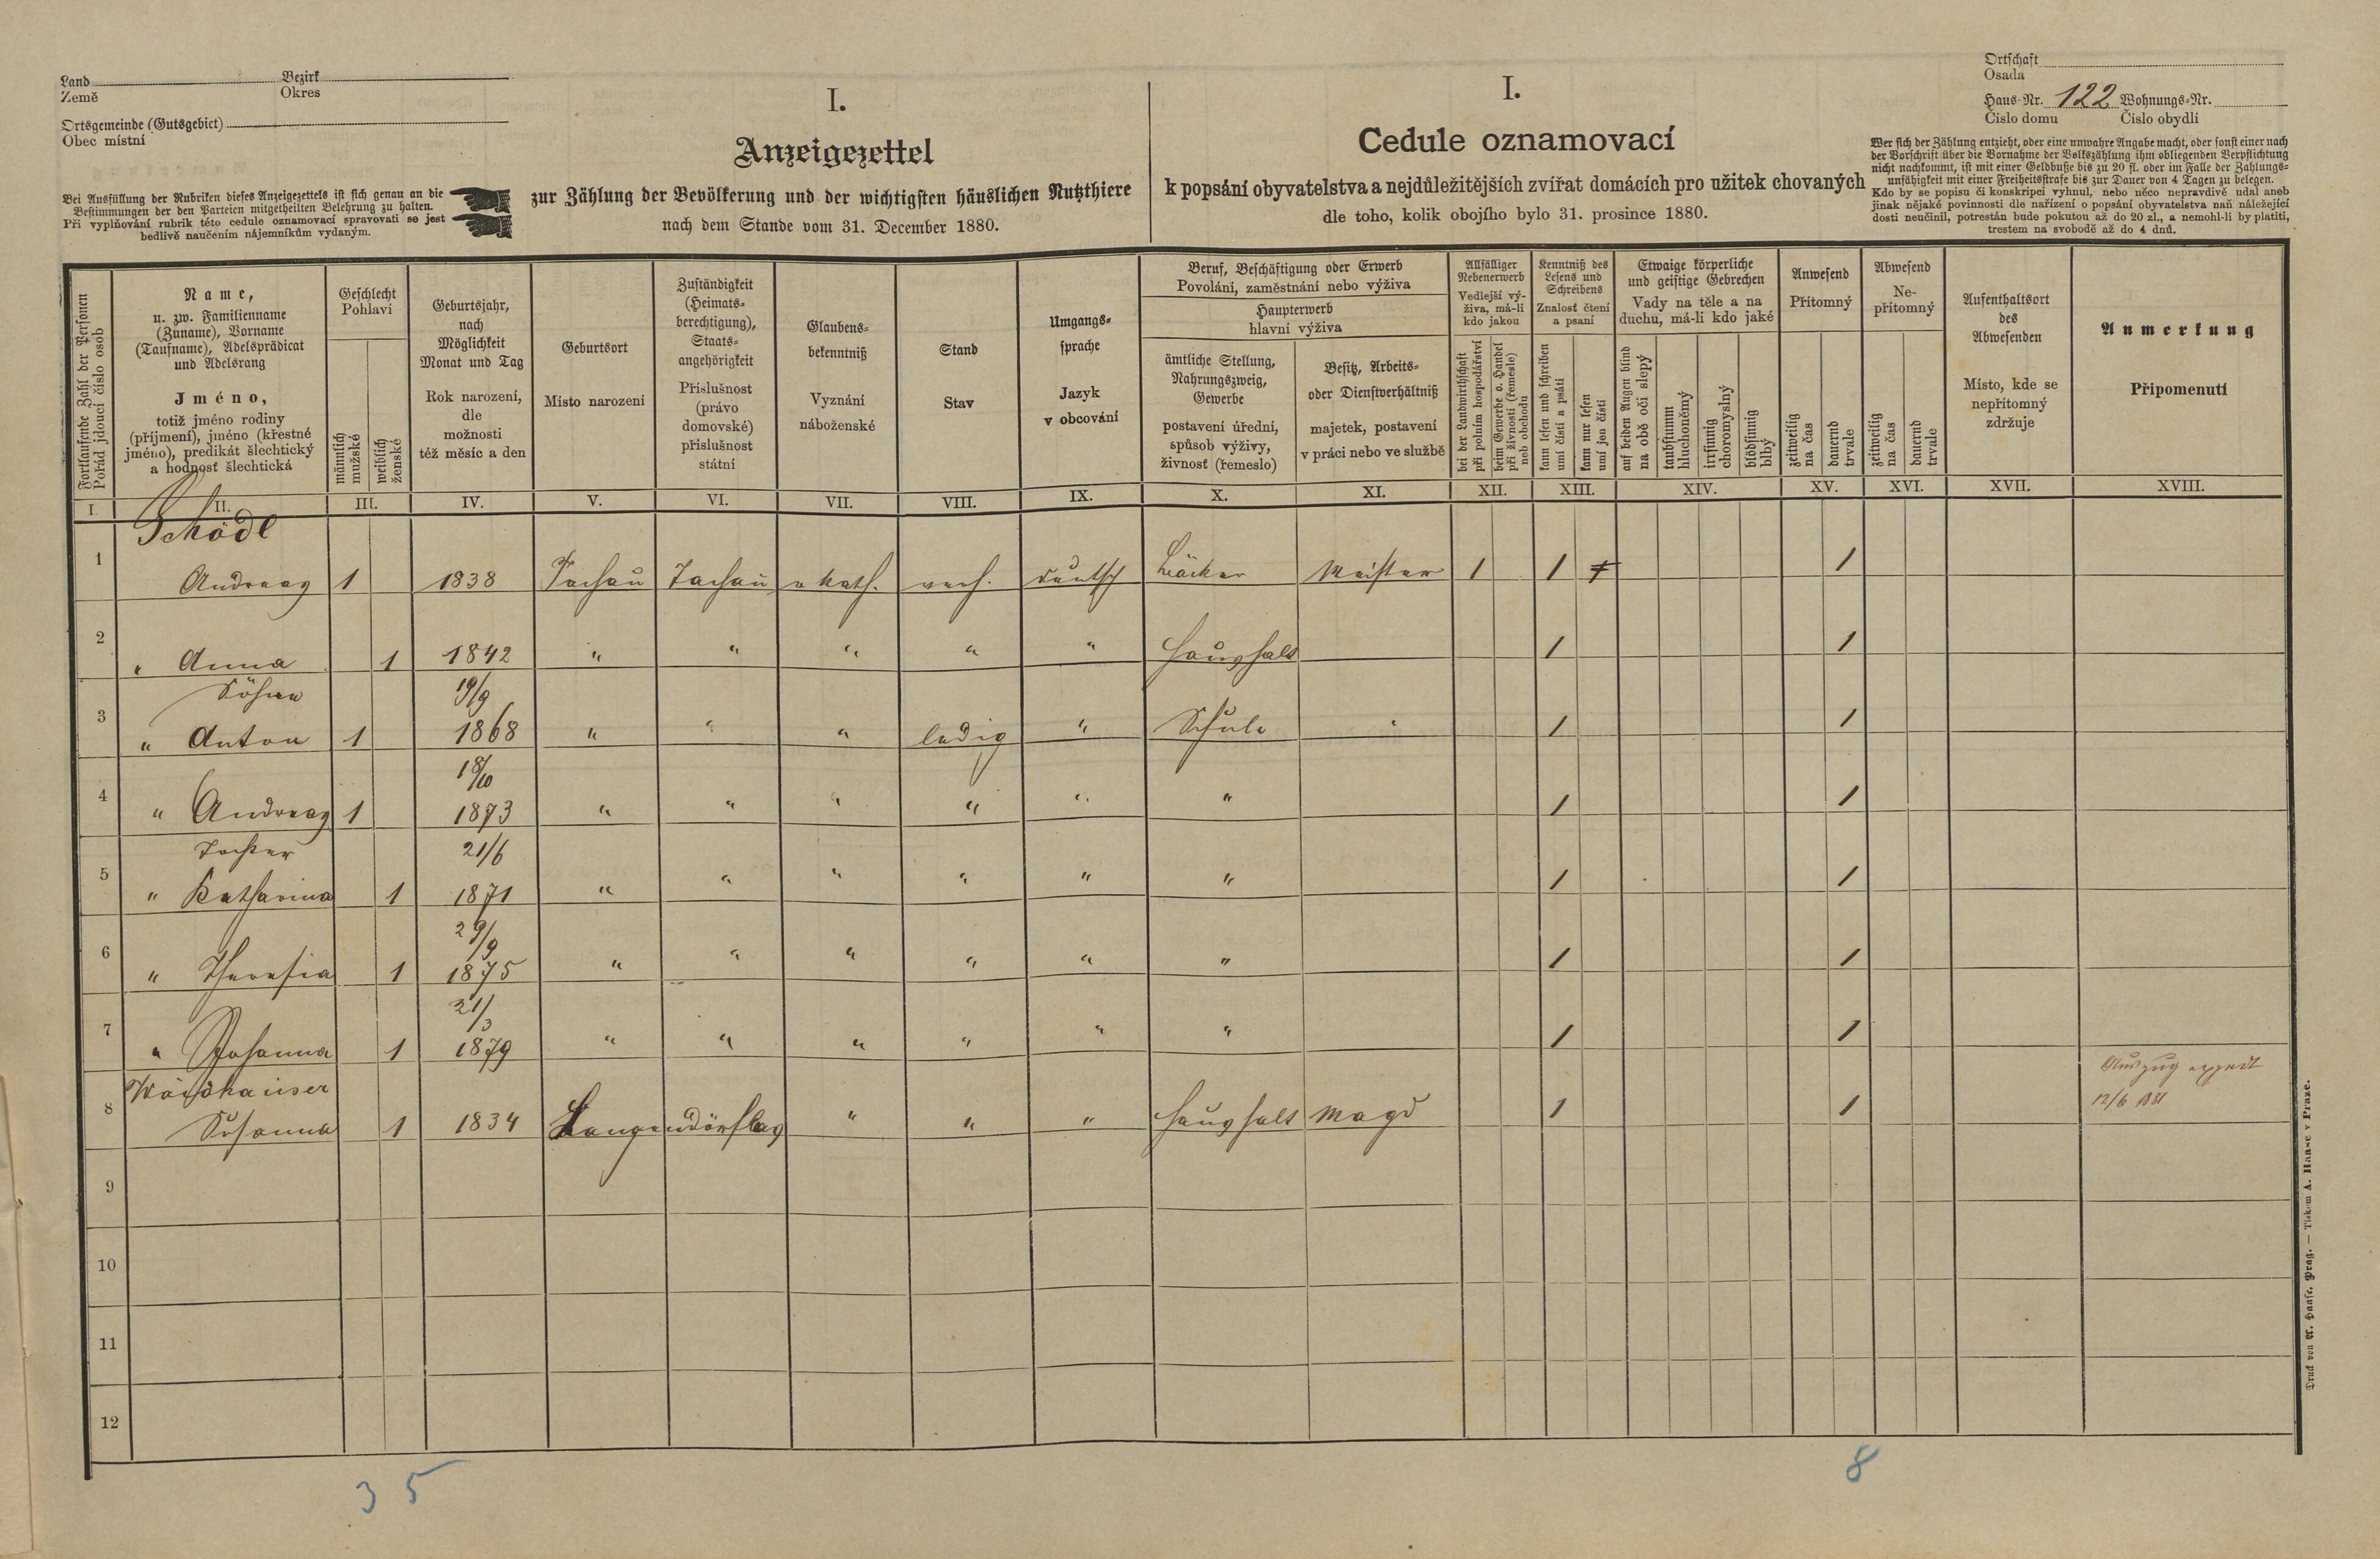 Land
Země
Bezirk
Okres
Ortsgemeinde (Gutsgebiet)
Obec místní
Bei Ausfüllung der Rubriken dieses Anzeigezettels ist sich genau an die
Bestimmungen der den Parteien mitgetheilten Belehrung zu halten.
Při vyplňování rubrik této cedule oznamovací spravovati se jest
bedlivě naučením nájemníkům vydaným.
I.
Anzeigezettel
zur Zählung der Bevölkerung und der wichtigsten häuslichen Nutzthiere
nach dem Stande vom 31. December 1880.
I.
Cedule oznamovací
k popsání obyvatelstva a nejdůležitějších zvířat domácích pro užitek chovaných
dle toho, kolik obojího bylo 31. prosince 1880.
Ortschaft
Osada
Haus-Nr. 122 Wohnungs-Nr.
Číslo domu Číslo obydlí
Wer sich der Zählung entzieht, oder eine unwahre Angabe macht, oder sonst einer nach
der Vorschrift über die Vornahme der Volkszählung ihm obliegenden Verpflichtung
nicht nachkommt, ist mit einer Geldbuße bis zu 20 fl. oder im Falle der Zahlungs-
unfähigkeit mit einer Freiheitsstrafe bis zur Dauer von 4 Tagen zu belegen.
Kdo by se popisu či konskripci vyhnul, nebo něco nepravdivě udal aneb
jinak nějaké povinnosti dle nařízení o popsání obyvatelstva naň náležející
dosti neučinil, potrestán bude pokutou až do 20 zl., a nemohl-li by platiti,
trestem na svobodě až do 4 dnů.
Fortlaufende Zahl der Personen
Pořád jdoucí číslo osob
Name,
u. zw. Familienname
(Zuname), Vorname
(Taufname), Adelsprädicat
und Adelsrang
Jméno,
totiž jméno rodiny
(příjmení), jméno (křestné
jméno), predikát šlechtický
a hodnosť šlechtická
Geschlecht
Pohlaví
männlich
mužské
weiblich
ženské
Geburtsjahr,
nach
Möglichkeit
Monat und Tag
Rok narození,
dle
možnosti
též měsíc a den
Geburtsort
Místo narození
Zuständigkeit
(Heimats-
berechtigung),
Staats-
angehörigkeit
Příslušnost
(právo
domovské)
příslušnost
státní
Glaubens-
bekenntniß
Vyznání
náboženské
Stand
Stav
Umgangs-
sprache
Jazyk
v obcování
Beruf, Beschäftigung oder Erwerb
Povolání, zaměstnání nebo výživa
Haupterwerb
hlavní výživa
ämtliche Stellung,
Nahrungszweig,
Gewerbe
postavení úřední,
spůsob výživy,
živnosť (řemeslo)
Besitz, Arbeits-
oder Dienstverhältniß
majetek, postavení
v práci nebo ve službě
Allfälliger
Nebenerwerb
Vedlejší vý-
živa, má-li
kdo jakou
bei der Landwirthschaft
při polním hospodářství
beim Gewerbe o. Handel
při živnosti (řemesle)
neb obchodu
Kenntniß des
Lesens und
Schreibens
Znalosť čtení
a psaní
kann lesen und schreiben
umí čísti a psáti
kann nur lesen
umí jen čísti
Etwaige körperliche
und geistige Gebrechen
Vady na těle a na
duchu, má-li kdo jaké
auf beiden Augen blind
na obě oči slepý
taubstumm
hluchoněmý
irrsinnig
choromyslný
blödsinnig
blbý
Anwesend
Přítomný
zeitweilig
na čas
dauernd
trvale
Abwesend
Ne-
přítomný
zeitweilig
na čas
dauernd
trvale
Aufenthaltsort
des
Abwesenden
Místo, kde se
nepřítomný
zdržuje
Anmerkung
Připomenutí
I. II. III. IV. V. VI. VII. VIII. IX. X. XI. XII. XIII. XIV. XV. XVI. XVII. XVIII.
Schödl
1 Andreas 1 1838 Tachau Tachau r. kath. verh. deutsch Bäcker Meister 1 1 1 1
2 " Anna 1 1842 " " " " " Haushalt 1 1
Söhne 19/9
3 " Anton 1 1868 " " " ledig " Schule 1 1
18/10
4 " Andreas 1 1873 " " " " " " 1 1
Tochter 21/6
5 " Katharina 1 1871 " " " " " " 1 1
29/9
6 " Theresia 1 1875 " " " " " " 1 1
21/3
7 " Johanna 1 1879 " " " " " " 1 1
Waidhauser
8 Susanna 1 1834 Langendörflas " " " Haushalt Magd 1 1
Auszug
12/6 881
9
10
11
12
35
8
Druck von A. Haase, Prag. — Tiskem A. Haase v Praze.